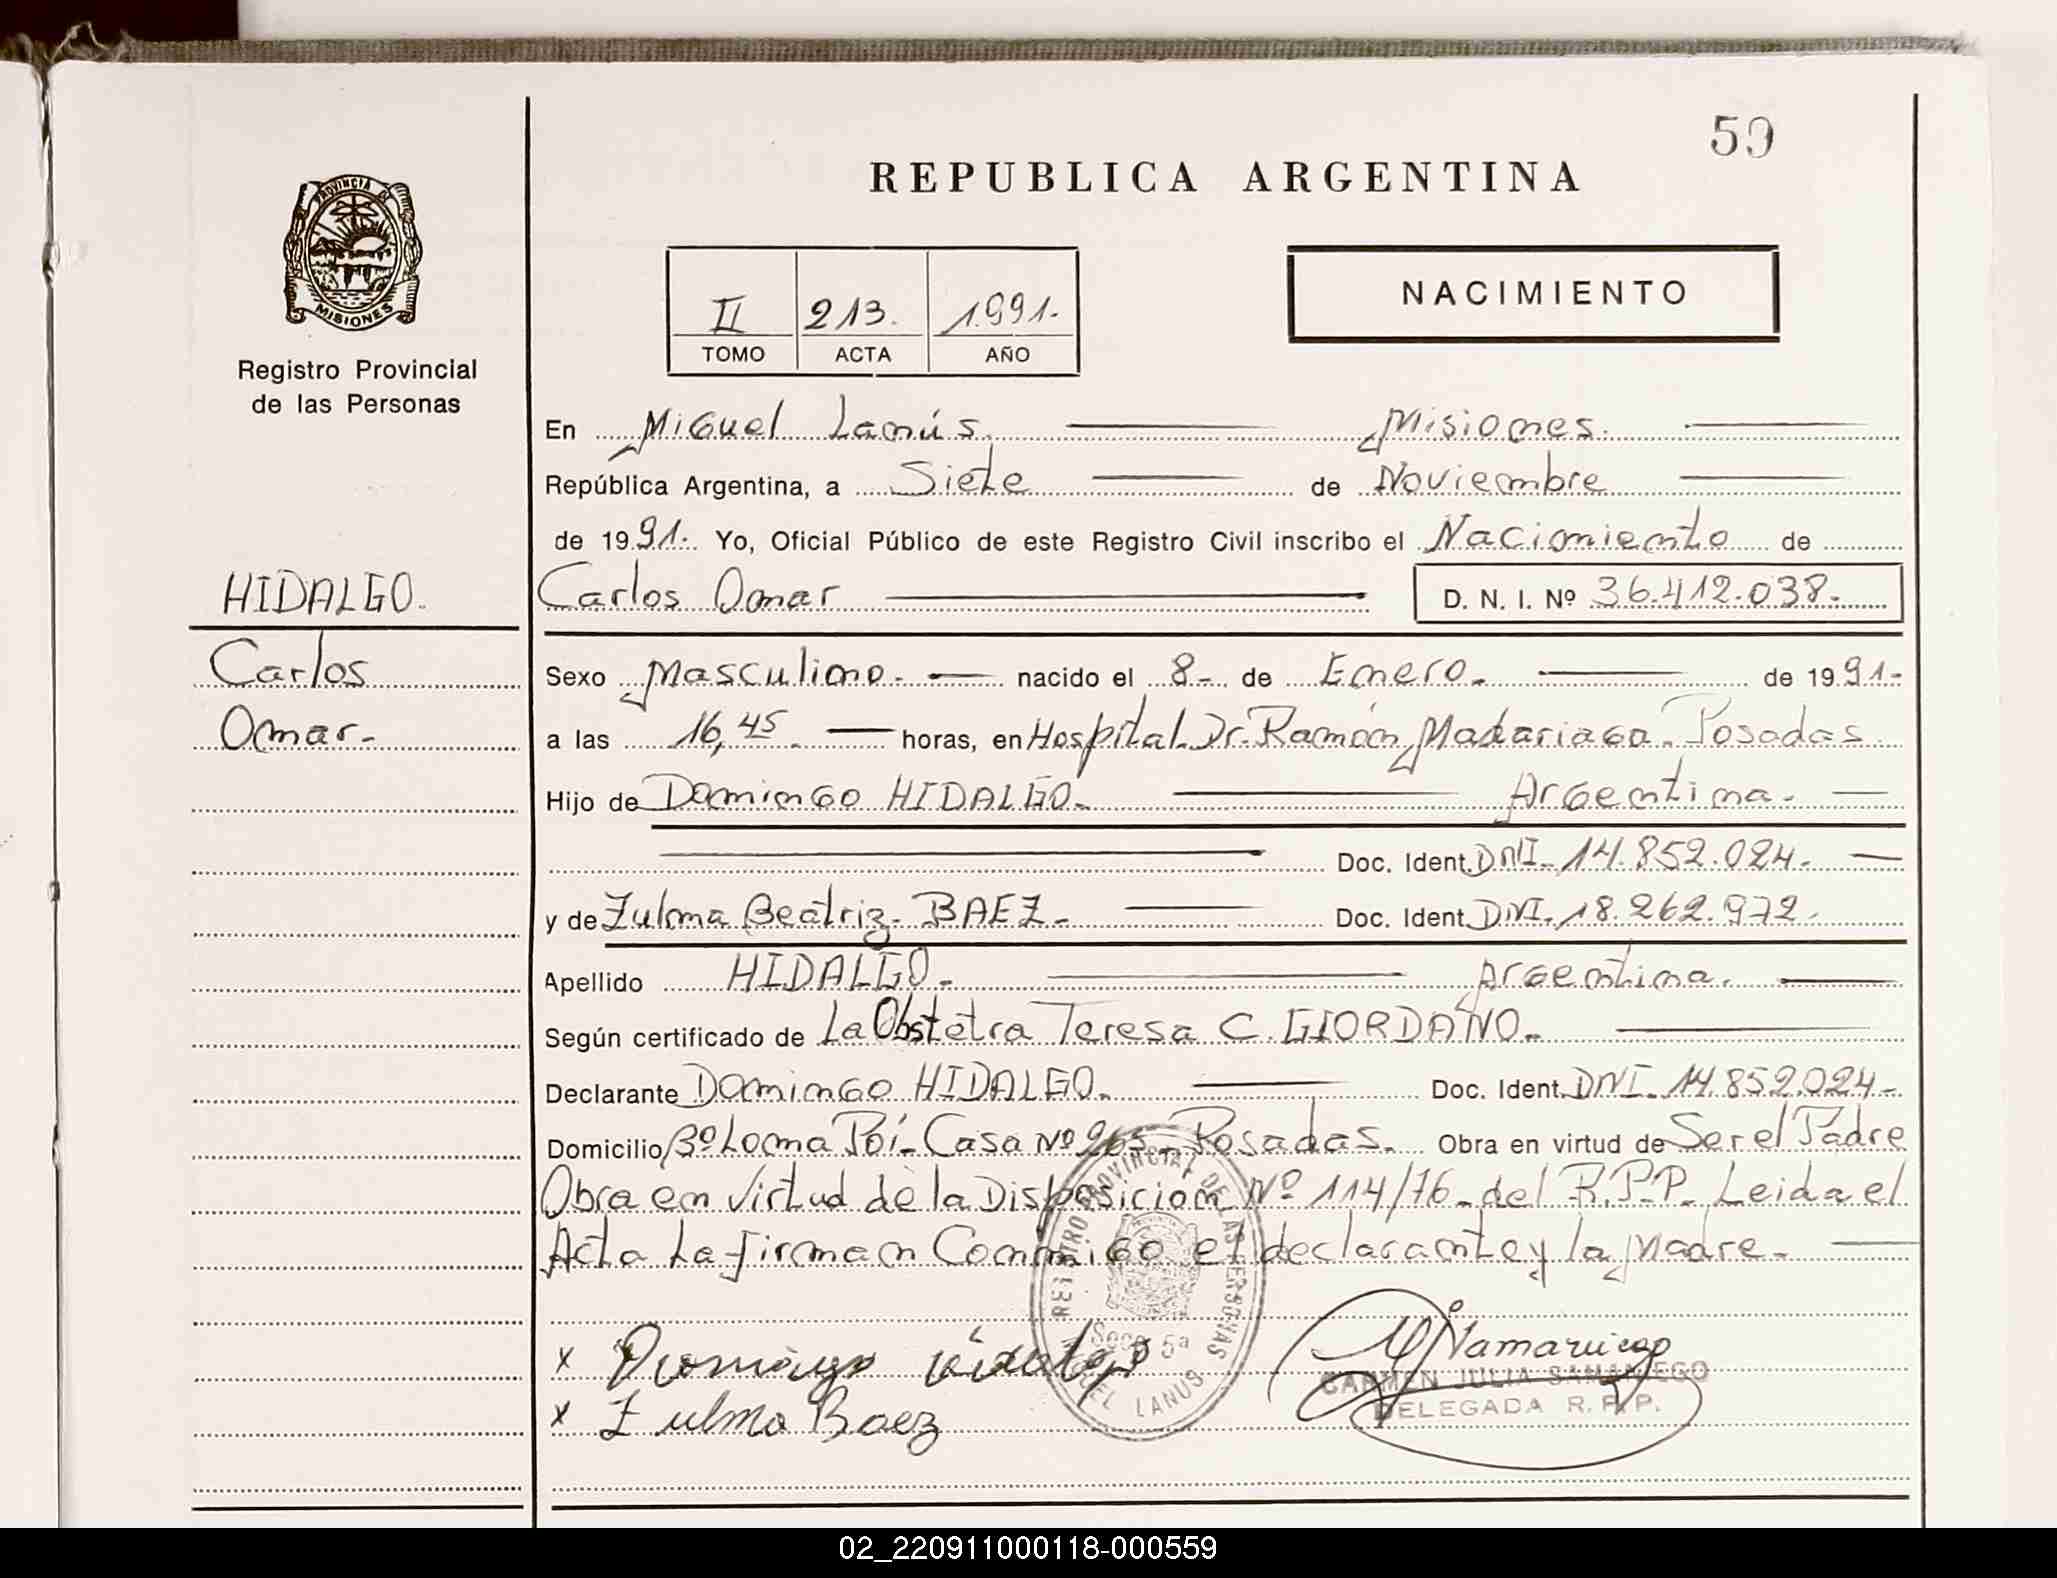 59
REPUBLICA ARGENTINA
PROVINCIA DE
MISIONES
Registro Provincial
de las Personas
NACIMIENTO
II 213. 1.991.-
TOMO ACTA AÑO
En Miguel Lanús. Misiones.
República Argentina, a Siete de Noviembre
de 1991.- Yo, Oficial Público de este Registro Civil inscribo el Nacimiento de
HIDALGO.
Carlos Omar D. N. I. Nº 36.412.038.-
Carlos
Omar.-
Sexo Masculino.- nacido el 8.- de Enero.- de 1991.-
a las 16,45. horas, en Hospital. Dr. Ramón Madariaga. Posadas.
Hijo de Domingo HIDALGO.- Argentina.-
Doc. Ident. DNI.- 14.852.024.-
y de Zulma Beatriz. BAEZ.- Doc. Ident. DNI. 18.262.972.
Apellido HIDALGO.- Argentina.
Según certificado de La Obstetra Teresa C. GIORDANO.-
Declarante Domingo HIDALGO.- Doc. Ident. DNI. 14.852.024.-
Domicilio Bº Loma Poí.- Casa Nº 263.- Posadas.- Obra en virtud de Ser el Padre
Obra en virtud de la Disposicion Nº 114/76.- del R.P.P. Leida el
Acta La firman Conmigo el declarante y la Madre.-
REGISTRO PROVINCIAL DE LAS PERSONAS
Secc. 5ª
MIGUEL LANUS
x Domingo Hidalgo
x Zulma Baez
CARMEN JULIA SAMANIEGO
DELEGADA R. P. P.
02_220911000118-000559